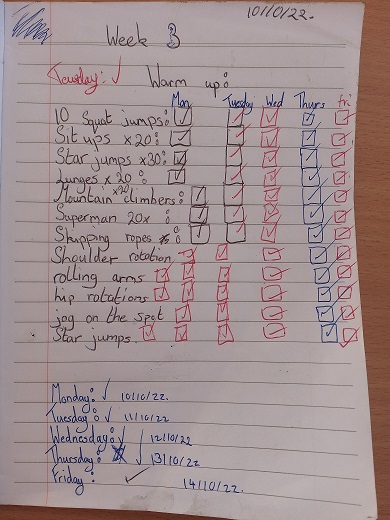 10/10/22.
Week 3
Tuesday: ✓ Warm up:
Mon Tuesday Wed Thurs Fri
10 Squat jumps:
Sit ups x 20:
Star jumps x30:
Lunges x 20:
Mountain climbers: x20
Superman 20x:
Skipping ropes:
Shoulder rotation
rolling arms
hip rotations
jog on the spot
Star jumps.
Monday: ✓ 10/10/22
Tuesday: ✓ 11/10/22
Wednesday: ✓ 12/10/22
Thursday: ✓ 13/10/22
Friday: ✓ 14/10/22.